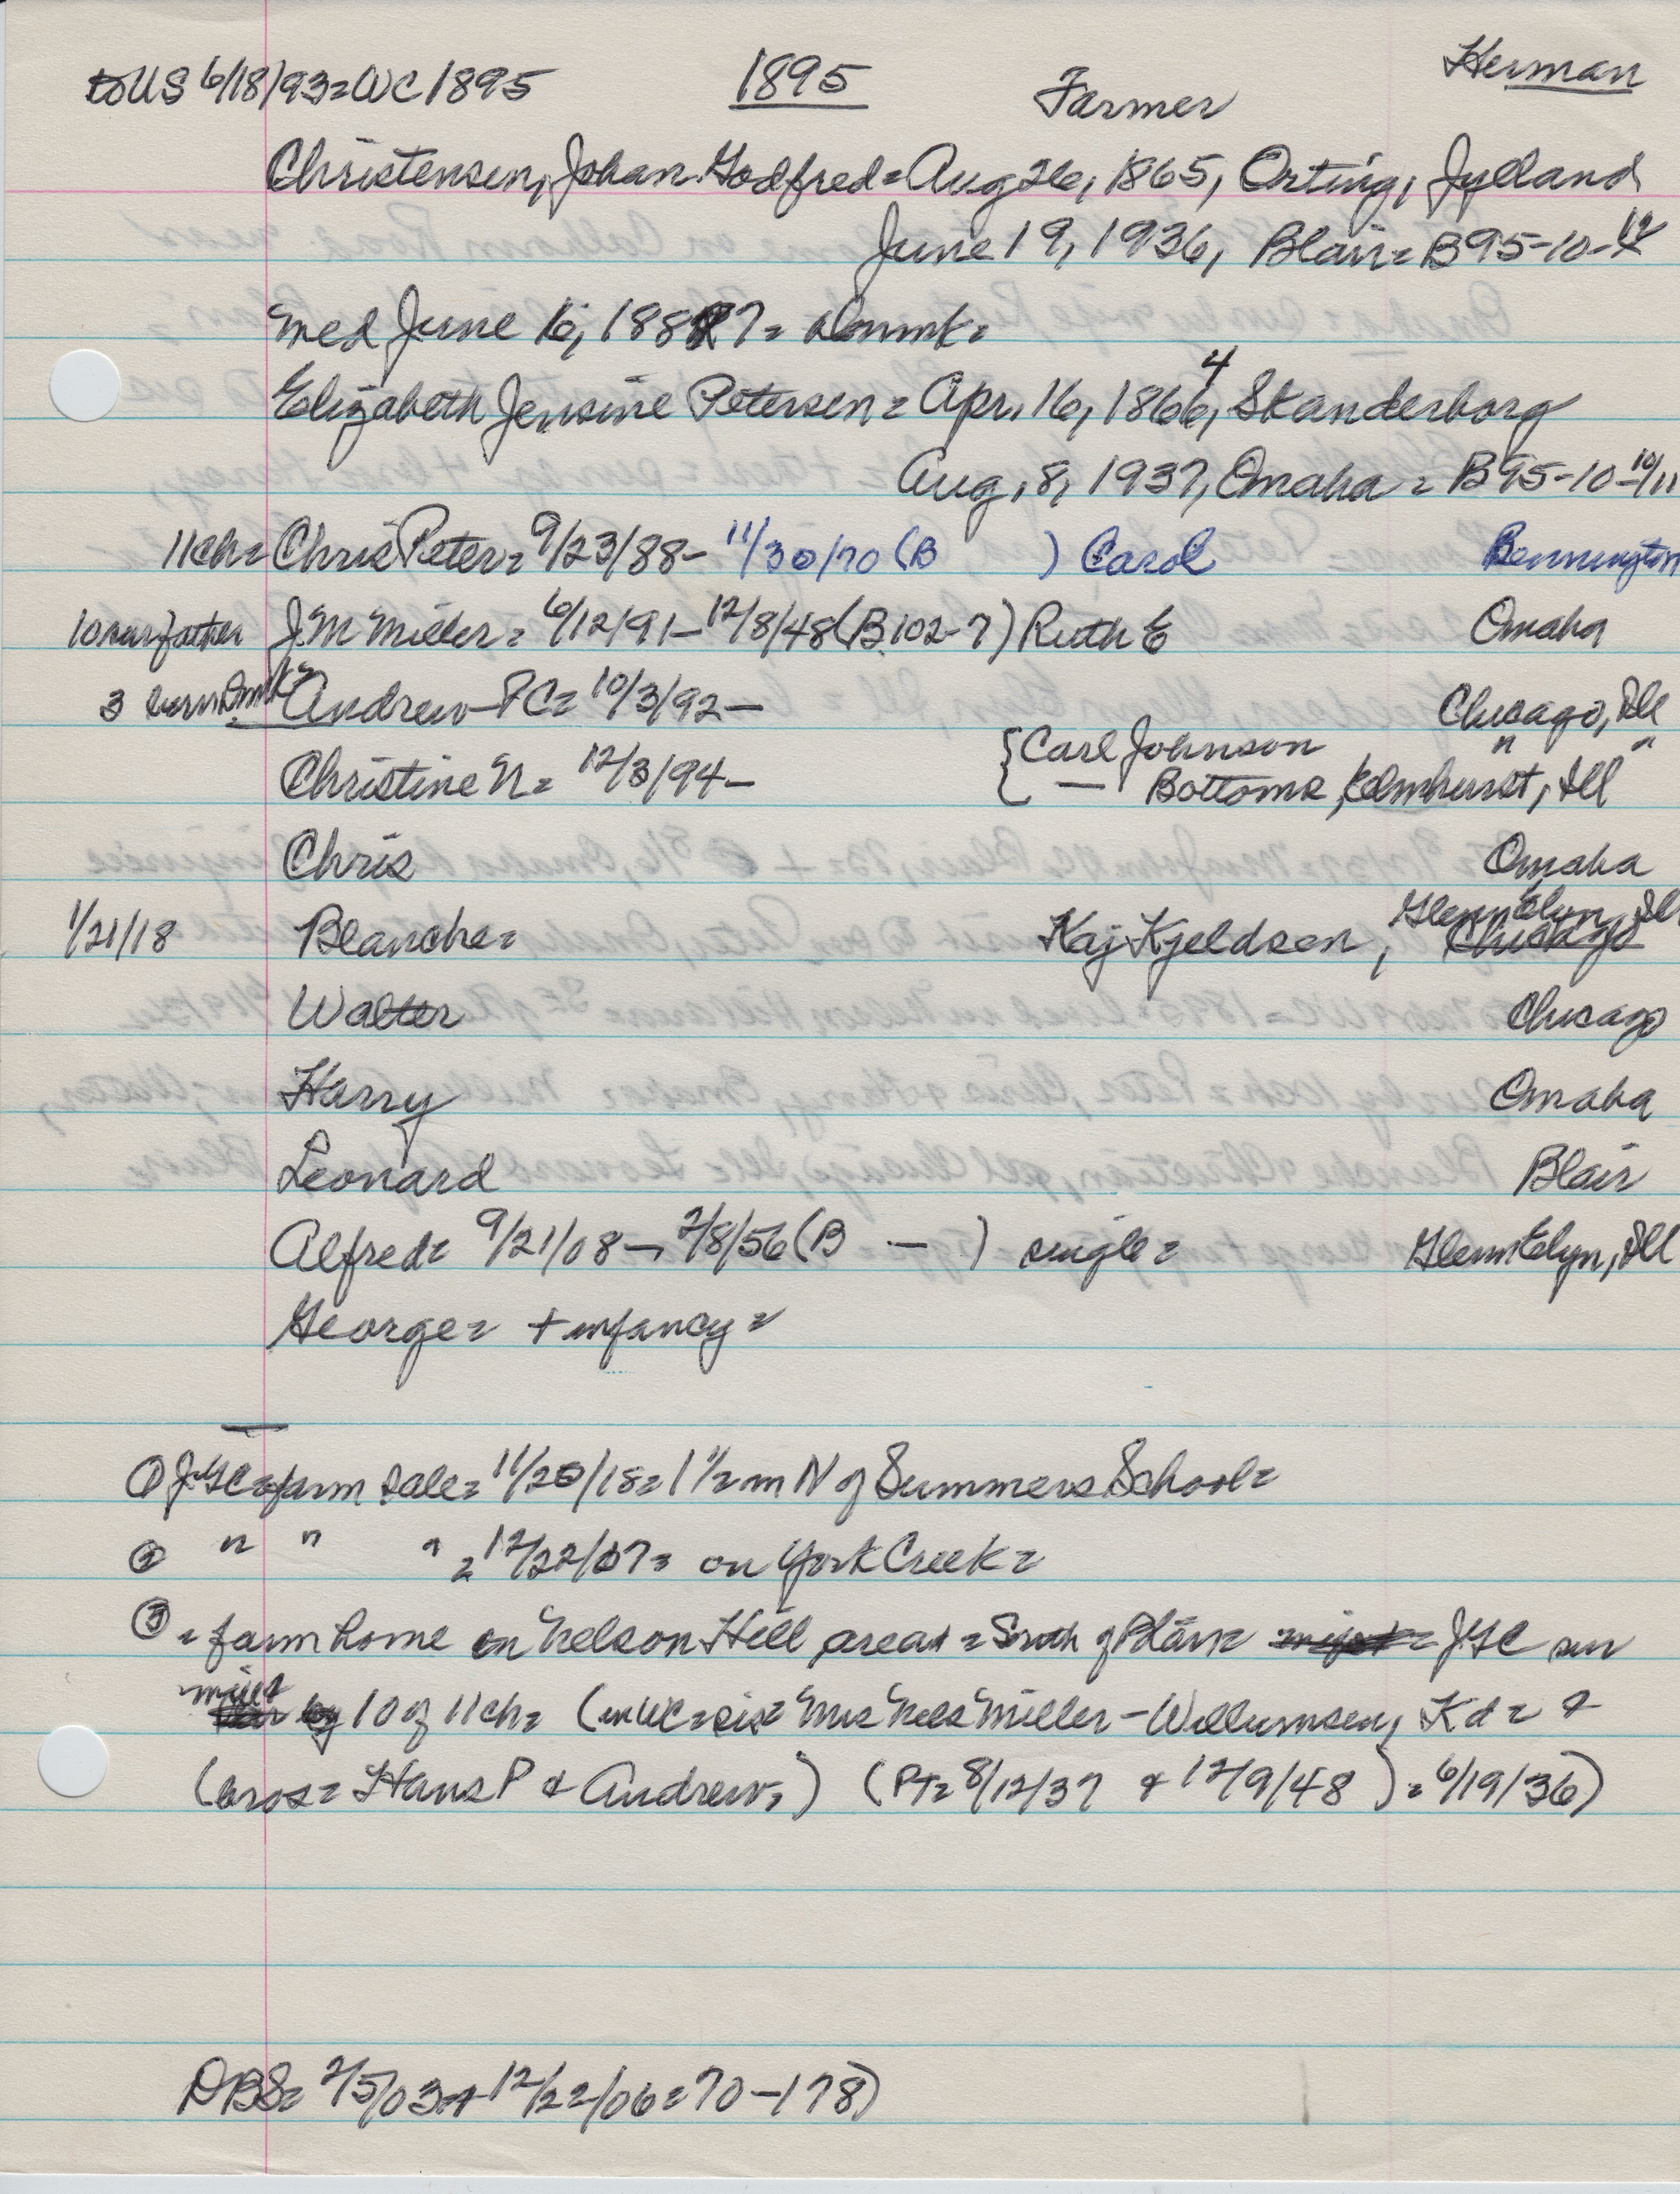 to US 6/18/93=WC 1895 1895 Farmer Herman
Christensen, Johan Godfred=Aug 26, 1865, Orting, Jylland
June 19, 1936, Blair=B95-10-12
med June 16, 1887= Denmk=
Elizabeth Jensine Petersen= Apr. 16, 1864, Skanderborg
Aug, 8, 1937, Omaha = B95-10-10/11
11ch= Chris Peter= 9/23/88- 11/30/70 (B ) Carol Bennington
10 sur father J.M Miller= 6/12/91-12/8/48 (B.102-7) Ruth E Omaha
3 born Dmk= Andrew PC= 10/3/92- Chicago, Ill
{Carl Johnson " "
Christine N= 12/3/94- — Bottoms, Elmhurst, Ill
Chris Omaha
Glenn Elyn, Ill
1/21/18 Blanche= Kaj Kjeldsen, Chicago
Walter Chicago
Harry Omaha
Leonard Blair
Alfred= 9/21/08- 2/8/56 (B — ) single= Glenn Elyn, Ill
George= + infancy=
① JGC=farm sale= 11/20/18=1 1/2 m N of Summers School=
② " " " = 12/22/07= on York Creek=
③ = farm home on Nelson Hill area = South of Blair= JGC sur
by 10 of 11ch= (in WC=sis= Mrs Nels Miller-Willumsen, Kd= &
(bros= Hans P & Andrew,) (PT= 8/12/37 & 12/9/48 )= 6/19/36)
DBS= 2/5/03+12/22/06=70-178)